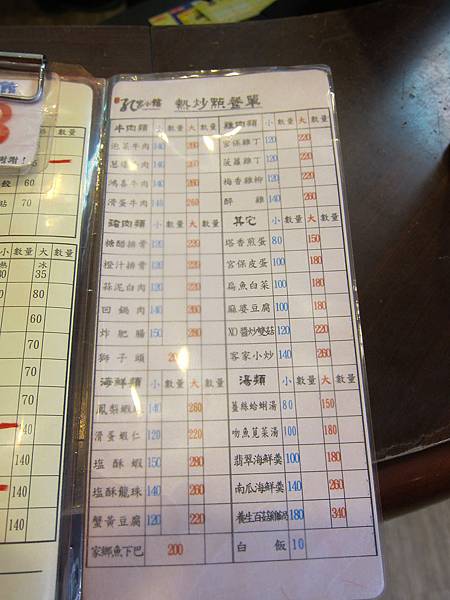 孔宮小館 熱炒點餐單
牛肉類 小 數量 大 數量 雞肉類 小 數量 大 數量
泡菜牛肉 140 260 宮保雞丁 120 220
蔥爆牛肉 140 260 菠蘿雞丁 120 220
鴻喜牛肉 140 260 梅香雞柳 120 220
滑蛋牛肉 140 260 醉雞 140 260
豬肉類 小 數量 大 數量 其它 小 數量 大 數量
糖醋排骨 120 220 塔香煎蛋 80 150
橙汁排骨 120 220 宮保皮蛋 100 180
蒜泥白肉 120 220 扁魚白菜 100 180
回鍋肉 140 260 麻婆豆腐 100 180
炸肥腸 150 280 XO醬炒雙菇 120 220
獅子頭 20 客家小炒 140 260
海鮮類 小 數量 大 數量 湯類 小 數量 大 數量
鳳梨蝦 140 260 薑絲蛤蜊湯 80 150
滑蛋蝦仁 120 220 吻魚莧菜湯 100 180
塩酥蝦 150 280 翡翠海鮮羹 100 180
塩酥龍珠 140 260 南瓜海鮮羹 140 260
蟹黃豆腐 120 220 養生百菇雞湯 180 340
家鄉魚下巴 200 白飯 10
謝謝!
數量
60
70
小 數量 大 數量
冰
35
80
60
70
70
40
140
140
140